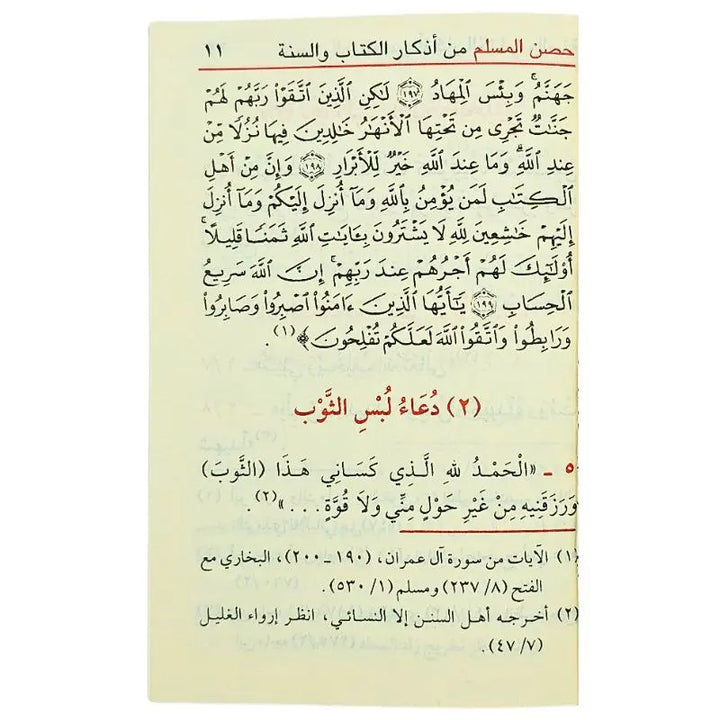 حصن المسلم من أذكار الكتاب والسنة ١١
جَهَنَّمُ ۚ وَبِئْسَ ٱلْمِهَادُ ١٩٧ لَٰكِنِ ٱلَّذِينَ ٱتَّقَوْا۟ رَبَّهُمْ لَهُمْ
جَنَّٰتٌ تَجْرِى مِن تَحْتِهَا ٱلْأَنْهَٰرُ خَٰلِدِينَ فِيهَا نُزُلًا مِّنْ
عِندِ ٱللَّهِ ۗ وَمَا عِندَ ٱللَّهِ خَيْرٌ لِّلْأَبْرَارِ ١٩٨ وَإِنَّ مِنْ أَهْلِ
ٱلْكِتَٰبِ لَمَن يُؤْمِنُ بِٱللَّهِ وَمَآ أُنزِلَ إِلَيْكُمْ وَمَآ أُنزِلَ
إِلَيْهِمْ خَٰشِعِينَ لِلَّهِ لَا يَشْتَرُونَ بِـَٔايَٰتِ ٱللَّهِ ثَمَنًا قَلِيلًا ۗ
أُو۟لَٰٓئِكَ لَهُمْ أَجْرُهُمْ عِندَ رَبِّهِمْ ۗ إِنَّ ٱللَّهَ سَرِيعُ
ٱلْحِسَابِ ١٩٩ يَٰٓأَيُّهَا ٱلَّذِينَ ءَامَنُوا۟ ٱصْبِرُوا۟ وَصَابِرُوا۟
وَرَابِطُوا۟ وَٱتَّقُوا۟ ٱللَّهَ لَعَلَّكُمْ تُفْلِحُونَ﴾(١).
(٢) دُعَاءُ لُبْسِ الثَّوْب
٥ ـ «الْحَمْدُ للهِ الَّذِي كَسَانِي هَذَا (الثَّوبَ)
وَرَزَقَنِيهِ مِنْ غَيْرِ حَوْلٍ مِنِّي وَلَا قُوَّةٍ...»(٢).
(١) الآيات من سورة آل عمران، (١٩٠ ـ ٢٠٠)، البخاري مع
الفتح (٨/ ٢٣٧) ومسلم (١/ ٥٣٠).
(٢) أخرجه أهل السنن إلا النسائي، انظر إرواء الغليل
(٧/ ٤٧).